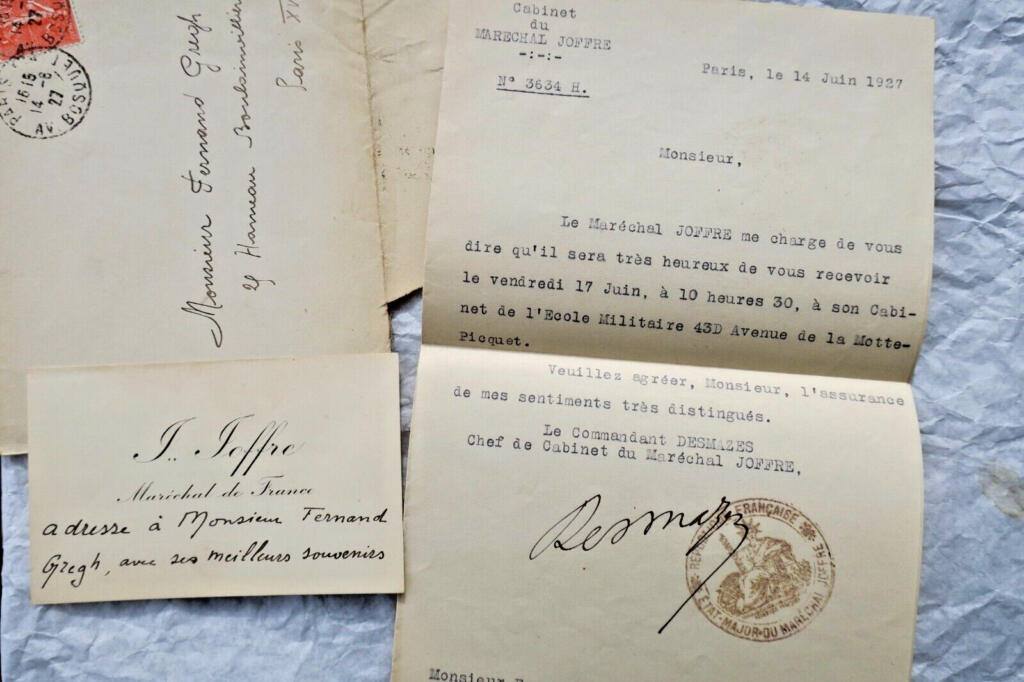 PARIS
16 15
14 -8
27
AV. BOSQUET
Monsieur Fernand Gregh
Hameau Boulainvilliers
Paris XV
Cabinet
du
MARECHAL JOFFRE
-:-:-
N° 3634 H.
Paris, le 14 Juin 1927
Monsieur,
Le Maréchal JOFFRE me charge de vous
dire qu'il sera très heureux de vous recevoir
le vendredi 17 Juin, à 10 heures 30, à son Cabi-
net de l'Ecole Militaire 43D Avenue de la Motte-
Picquet.
Veuillez agréer, Monsieur, l'assurance
de mes sentiments très distingués.
Le Commandant DESMAZES
Chef de Cabinet du Maréchal JOFFRE,
Desmazes
REPUBLIQUE FRANÇAISE
ETAT-MAJOR DU MARÉCHAL JOFFRE
Monsieur
J. Joffre
Maréchal de France
adresse à Monsieur Fernand
Gregh, avec ses meilleurs souvenirs